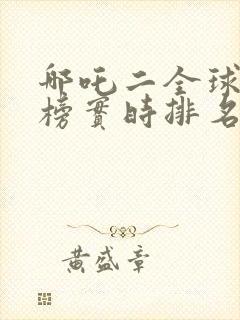 哪吒二全球
榜實時排名
黃盛章